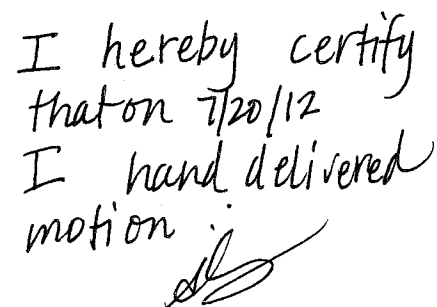 I hereby certify
that on 7/20/12
I hand delivered
motion :